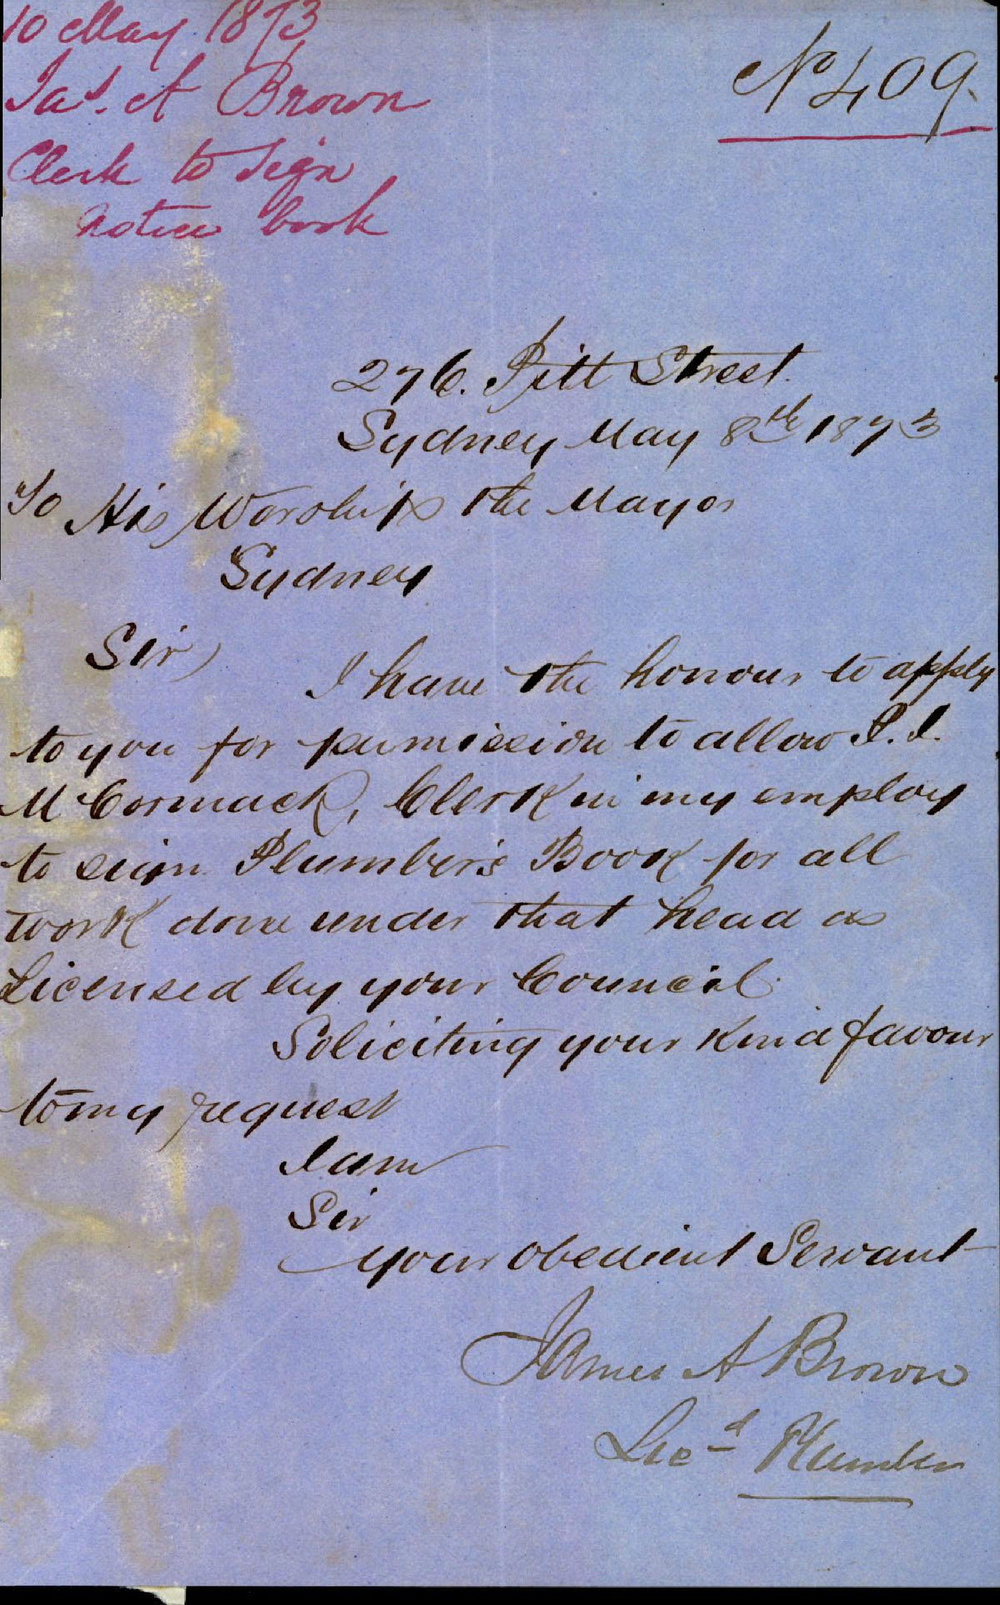 10 May 1873
Jas. A Brown
Clerk to sign
notice book
No 409.
276. Pitt Street.
Sydney May 8th 1873
To His Worship the Mayor
Sydney
Sir,
I have the honour to apply
to you for permission to allow P. I.
McCormack, Clerk in my employ
to sign Plumber's Book for all
work done under that head as
Licensed by your Council.
Soliciting your kind favour
to my request
I am
Sir
your obedient Servant
James A Brown
Licd Plumber